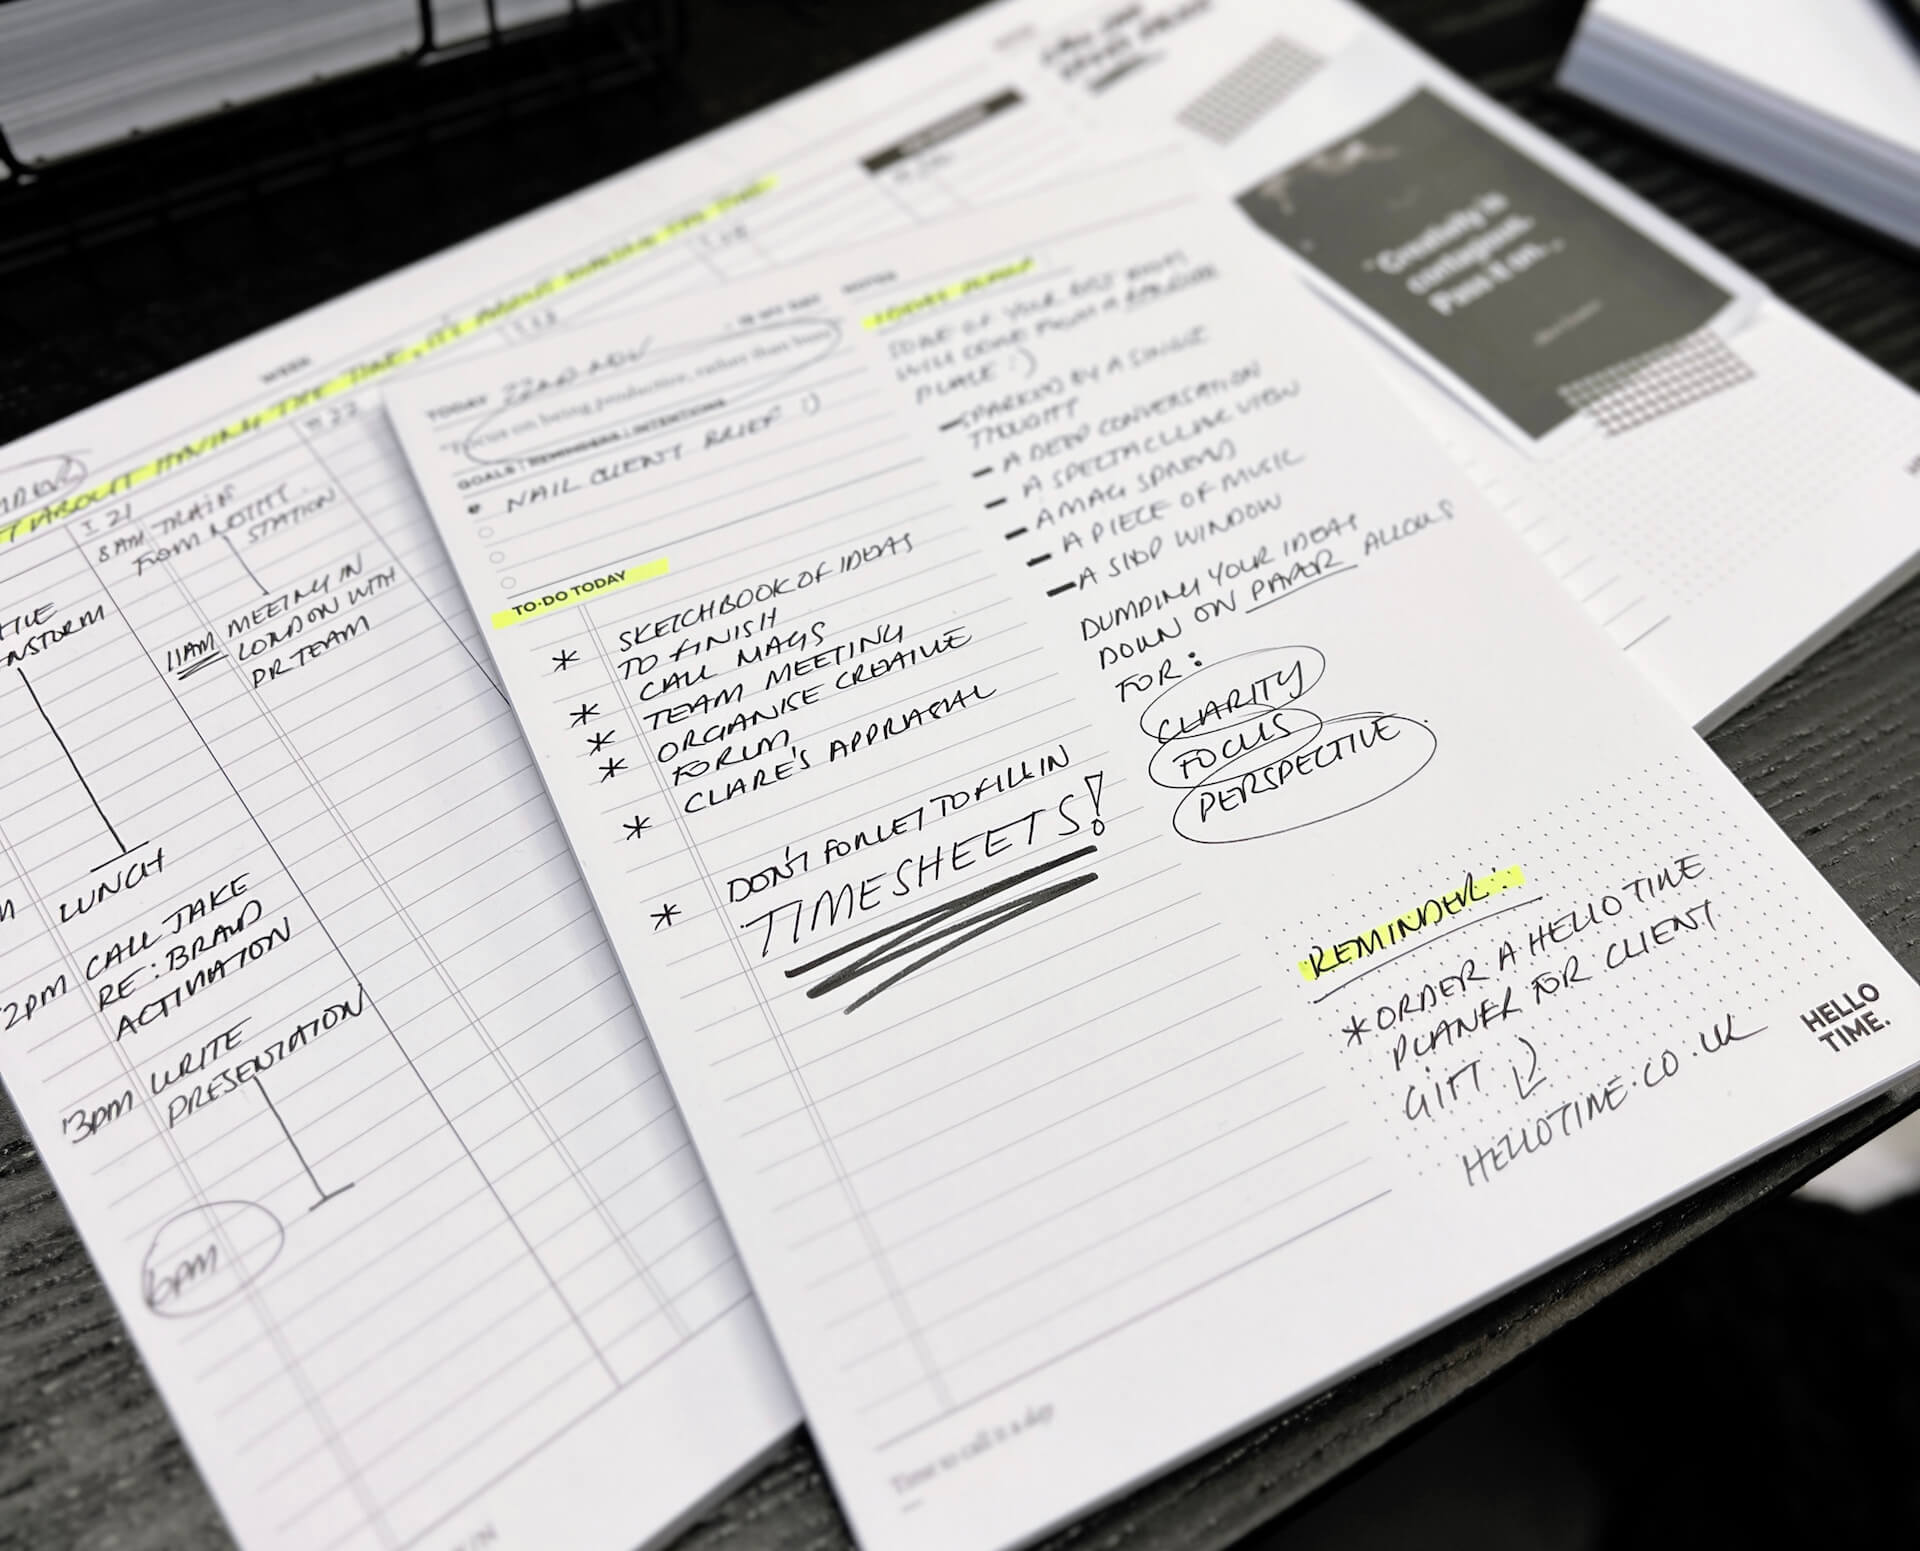 WEEK
ABOUT HAVING THE TIME, IT'S ABOUT MAKING THE TIME
T 21
8AM TRAIN
FROM NOTTT.
STATION
11AM MEETING IN
LONDON WITH
PR TEAM
W 22
T 23
LUNCH
2PM CALL JAKE
RE: BRAND
ACTIVATION
3PM WRITE
PRESENTATION
6PM
TODAY 22ND NOV
"Focus on being productive, rather than busy
GOALS | REMINDERS | INTENTIONS
NAIL CLIENT BRIEF :)
TO-DO TODAY
* SKETCHBOOK OF IDEAS
TO FINISH
* CALL MAGS
* TEAM MEETING
* ORGANISE CREATIVE
FORUM
* CLARE'S APPRASIAL
* DON'T FORGET TO FILL IN
TIMESHEETS!
Time to call it a day
NOTES
SOME OF YOUR BEST IDEAS
WILL COME FROM A
PLACE :)
- SPARKED BY A SINGLE
THOUGHT
- A DEEP CONVERSATION
- A SPECTACULAR VIEW
- A MAG SPREAD
- A PIECE OF MUSIC
- A SHOP WINDOW
DUMPING YOUR IDEAS
DOWN ON PAPER ALLOWS
FOR:
CLARITY
FOCUS
PERSPECTIVE
REMINDER:
* ORDER A HELLO TIME
PLANER FOR CLIENT
GIFT :)
HELLOTIME.CO.UK
HELLO
TIME.
"Creativity is
contagious.
Pass it on."